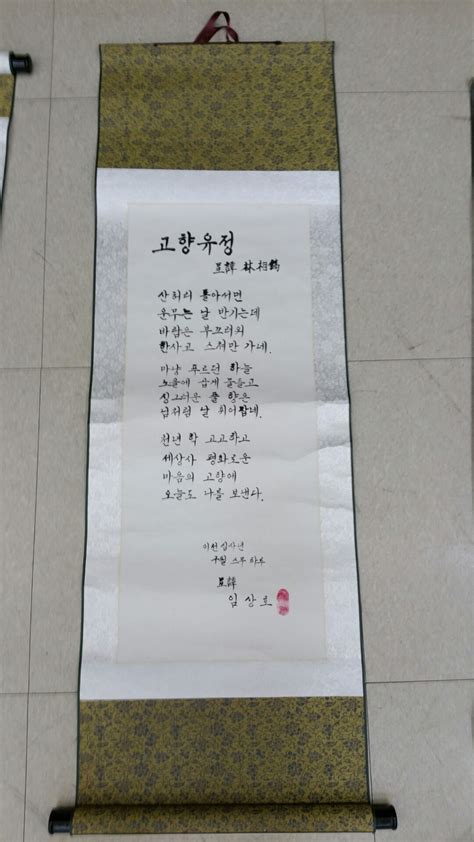 고향유정
林相鎬
산허리 돌아서면
운무는 날 반기는데
바람은 부끄러워
한사코 스쳐만 가네.
마냥 푸르던 하늘
노을에 곱게 물들고
싱그러운 풀 향은
넌저럼 날 휘어잡네.
천년 학 고고하고
세상사 평화로운
마음의 고향에
오늘도 나를 보낸다.
이천 십사년
구월 스무 하루
임상호